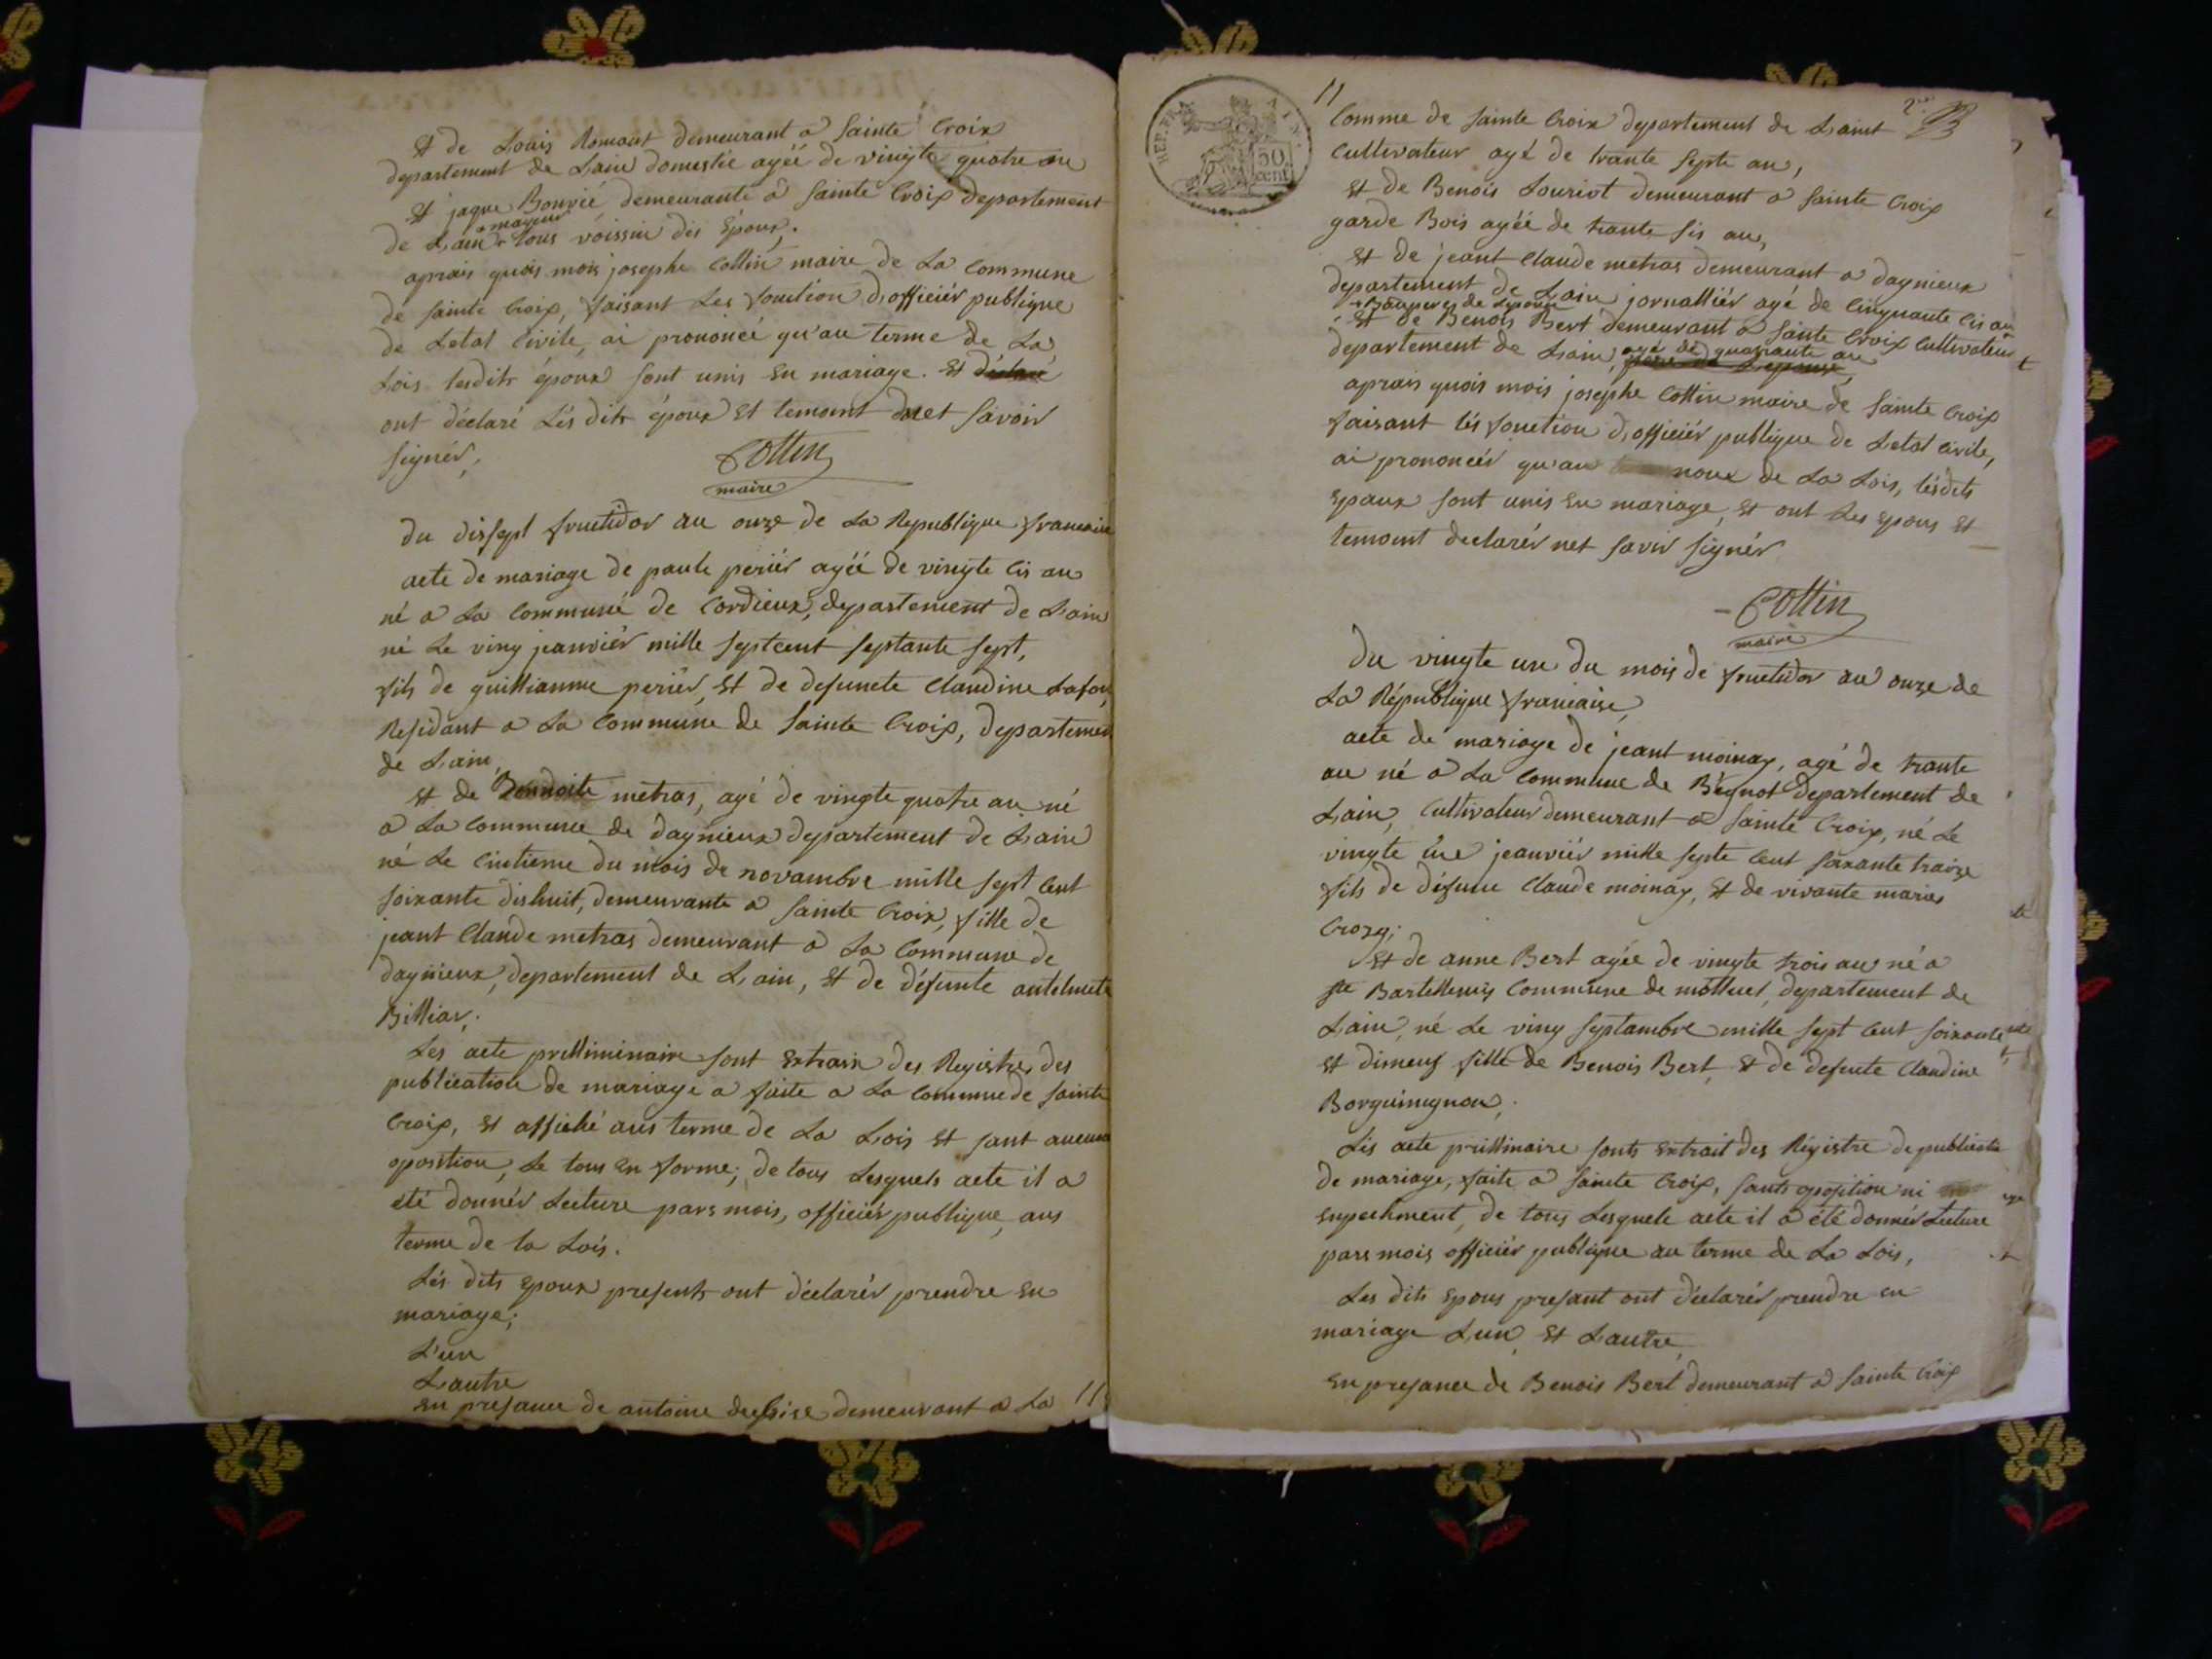 Et de Louis Romant demeurant a Sainte Croix
departement de Lain domestic agéé de vingte quatre an
Et jaque Bouvié demeurante a Sainte Croix departement
majeur
de Lain tous voissin dés Époux.
aprais quois mois josephe Cottin maire de La Commune
de Sainte Croix, faisant Les fonction d,officiér publique
de Letat Civile, ai prononcéé qu'au terme de La
Lois lesdits époux sont unis En mariage. Et déclaré
ont déclaré Lés dits époux Et temoint Savoir
Signér,
Cottin
maire
du dissept fructidor an onze de La Republique francaise
acte de mariage de paule periér agéé de vingte cis an
né a La Commune de Cordieux, departement de Lain
né Le ving janviér mille septcent septante sept,
fils de guilliaume periér, Et de defuncte Claudine Lafon,
Residant a La Commune de Sainte Croix, departement
de Lain,
Et de metras, agé de vingte quatre an né
a La Commune de dagnieux departement de Lain
né Le Cintieme du mois de novambre mille sept Cent
soixante dishuit, demeurante a Sainte Croix, fille de
jeant Claude metras demeurant a La Commune de
dagnieux, departement de Lain, Et de défunte antelmete
Billiar,.
Les acte prélliminaire sont Extraix des Registres des
publication de mariage a faite a La Commune de Sainte
Croix, Et affiché aus terme de La Lois Et sant aucune
oposition, Le tous En forme; de tous Lesquels acte il a
eté donnér Lecture pars mois, officiér publique, aus
terme de la Lois.
Lés dits Epoux presents ont déclarér prendre En
mariage;
L'un
Lautre
En presance de antoine demeurant a La 11
REP. FRA.
50
cent
11
2
Comme de Sainte Croix departement de Laint
Cultivateur agé de trante septe an,
Et de Benois Louriot demeurant a Sainte Croix
garde Bois agéé de trante sis an,
Et de jeant Claude metras demeurant a dagnieux
departement de Lain jornalliér agé de Cinquante Cis an
Et de Benois Bert demeurant a Sainte Croix Cultivateur
departement de Lain, agé de quarante an
aprais quois mois josephe Cottin maire de Sainte Croix
faisant lés fonction d,officiér publique de Letat Civile,
ai prononcér qu'au noux de La Lois, lésdits
Epoux sont unis En mariage, Et ont Les Epous Et
temoint declarér net savir signér
Cottin
maire
du vingte un du mois de fructidor an onze de
La République francaise,
acte de mariage de jeant moinay, agé de trante
an né a La Commune de Bégnot departement de
Lain, Cultivateur demeurant a Sainte Croix, né Le
vingte jeanviér mille septe Cent soixante traize
fils de défunc Claude moinay, Et de vivante maries
Crozy;
Et de anne Bert agée de vingte trois an né a
Ste Bartellemis Commune de molluel, departement de
Lain, né Le ving septambre mille sept Cent soixante
Et dineuf fille de Benois Bert, Et de defunte Claudine
Borguinugnon,.
Lis acte prilliminaire sonts Extrait des Régistre de publication
de mariage, faite a Sainte Croix, sants oposition ni
Enpechment, de tous Lesquele acte il a été donnér Lecture
pars mois officiér publique au terme de La Lois,
Les dits Epous presant ont déclarér prendre En
mariage Lun, Et Lautre,
En presance de Benois Bert demeurant a Sainte Croix